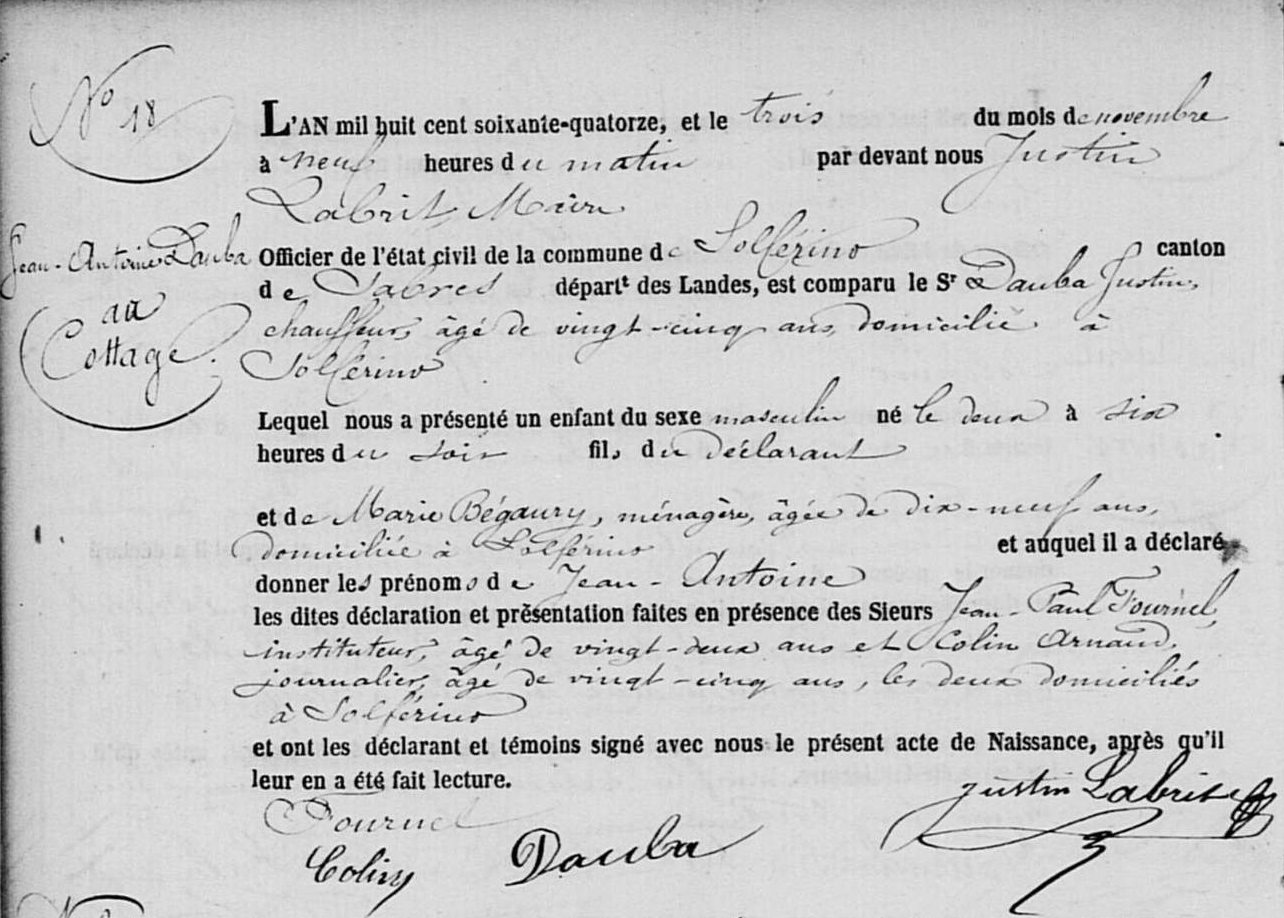 N° 18
Jean-Antoine Dauba
au
Cottage.
L'AN mil huit cent soixante-quatorze, et le trois du mois de novembre
à neuf heures du matin par devant nous Justin
Labrit Maire
Officier de l'état civil de la commune de Solférino canton
de Sabres départ^t des Landes, est comparu le S^r Dauba Justin,
chauffeur, âgé de vingt-cinq ans, domicilié à
Solférino
Lequel nous a présenté un enfant du sexe masculin né le deux à six
heures du soir fils du déclarant
et de Marie Bégaury, ménagère, âgée de dix-neuf ans,
domiciliée à Solférino et auquel il a déclaré
donner les prénoms de Jean-Antoine
les dites déclaration et présentation faites en présence des Sieurs Jean-Paul Fournel,
instituteur, âgé de vingt-deux ans et Colin Arnaud,
journalier, âgé de vingt-cinq ans, les deux domiciliés
à Solférino
et ont les déclarant et témoins signé avec nous le présent acte de Naissance, après qu'il
leur en a été fait lecture.
Justin Labrit
Fournel
Colin
Dauba